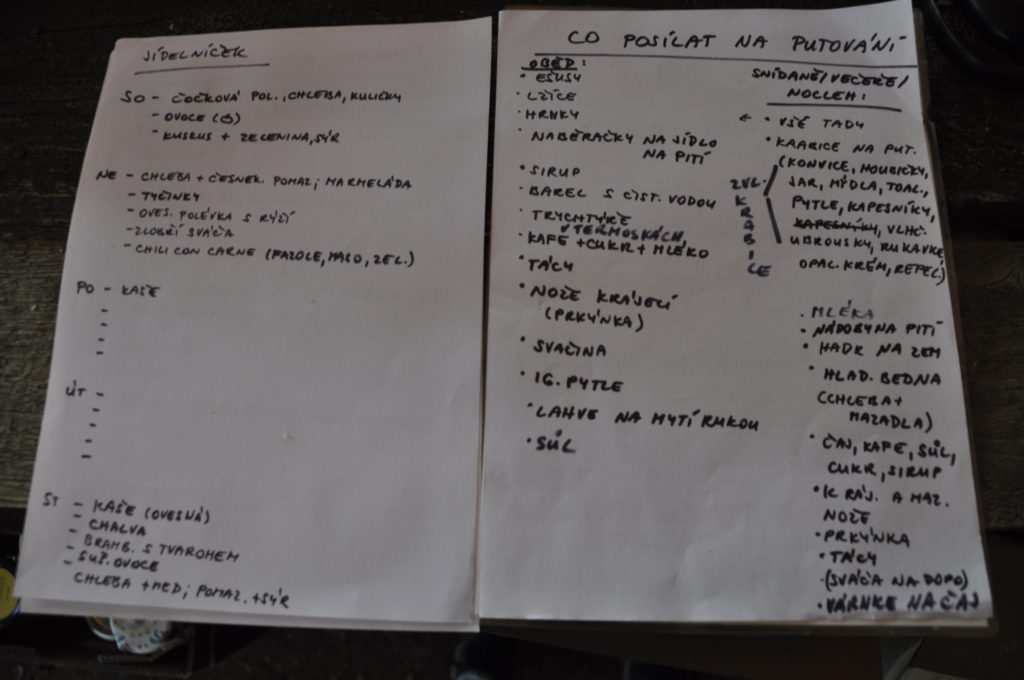 JÍDELNÍČEK
SO - ČOČKOVÁ POL., CHLEBA, KULIČKY
- OVOCE
- KUSKUS + ZELENINA, SÝR
NE - CHLEBA + ČESNEK. POMAZ; MARMELÁDA
- TYČINKY
- OVES. POLÉVKA S RÝŽÍ
- ZLOBŘÍ SVAČA
- CHILI CON CARNE (FAZOLE, MASO, ZEL.)
PO - KAŠE
-
-
-
-
ÚT -
-
-
-
-
ST - KAŠE (OVESNÁ)
- CHALVA
- BRAMB. S TVAROHEM
- SUŠ. OVOCE
CHLEBA + MED; POMAZ. + SÝR
CO POSÍLAT NA PUTOVÁNÍ
OBĚD:
• EŠUSY
• LŽÍCE
• HRNKY
• NABĚRAČKY NA JÍDLO
NA PITÍ
• SIRUP
• BAREL S ČIST. VODOU
• TRYCHTÝŘE
V TERMOSKÁCH
• KAFE + CUKR + MLÉKO
• TÁCY
• NOŽE KRÁJECÍ
(PRKÝNKA)
• SVAČINA
• IG. PYTLE
• LAHVE NA MYTÍ RUKOU
• SŮL
SNÍDANĚ/VEČEŘE/
NOCLEH:
← • VŠE TADY
• KRABICE NA PUT.
(KONVICE, HOUBIČKY,
JAR, MÝDLA, TOAL.
PYTLE, KAPESNÍKY,
KAPESNÍKY, VLHČ.
UBROUSKY, RUKAVKE
OPAL. KRÉM, REPEL.)
ZVL.
KRABICE
• MLÉKA
• NÁDOBY NA PITÍ
• HADR NA ZEM
• HLAD. BEDNA
(CHLEBA +
MAZADLA)
• ČAJ, KAFE, SŮL,
CUKR, SIRUP
• KRÁJ. A MAZ.
NOŽE
• PRKÝNKA
• TÁCY
• (SVAČA NA DOPO)
• VÁRNKE NA ČAJ